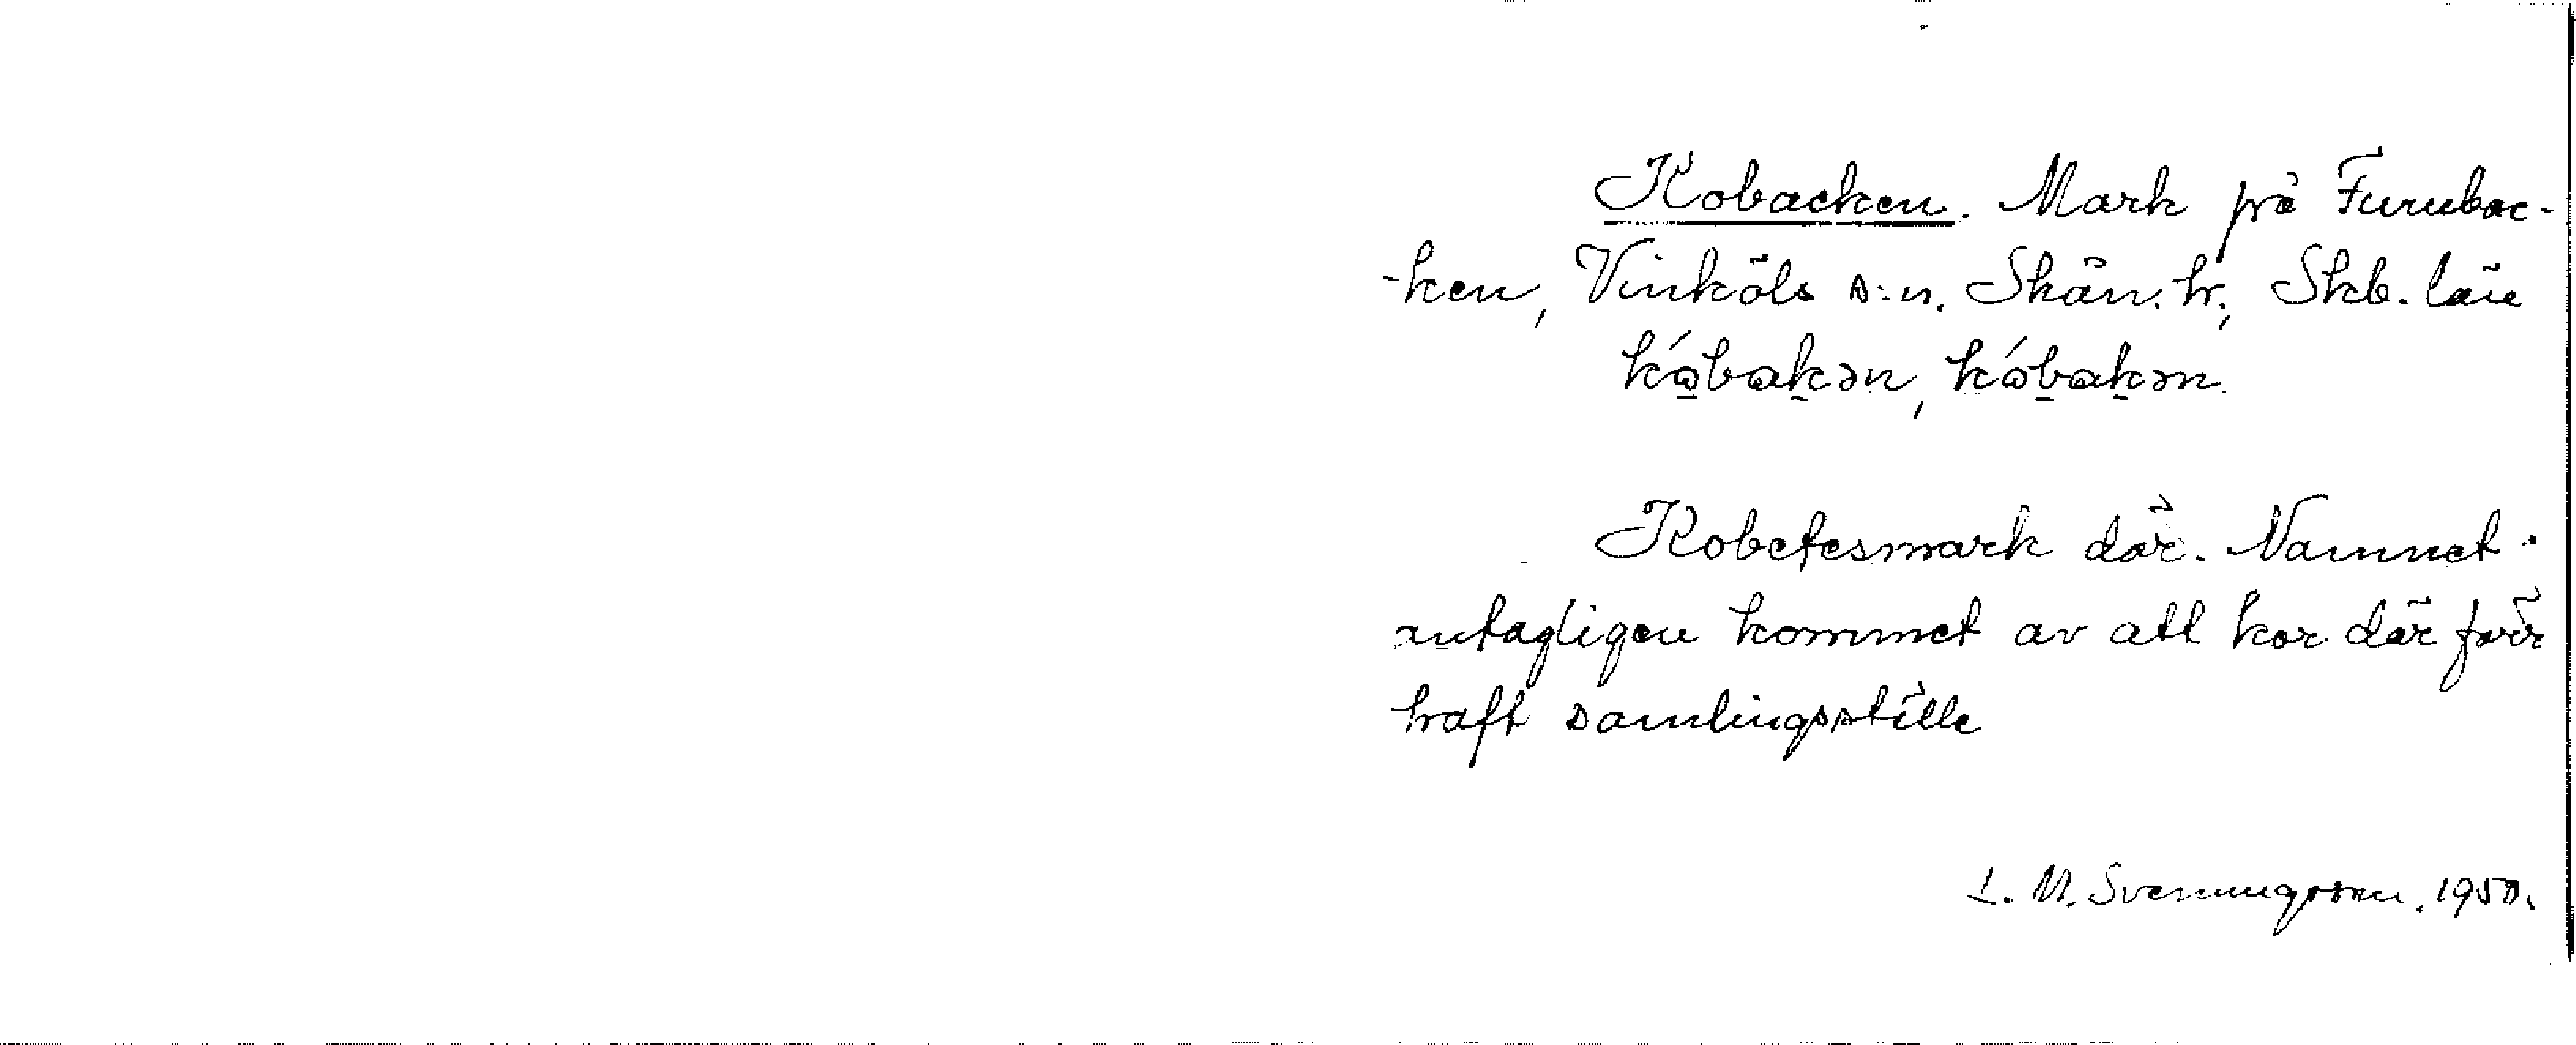 Kobacken. Mark på Furubac-
-ken, Vinköls s:n. Skån. hr, Skb. län
kóbakən, kóbakən.
Kobetesmark där. Namnet
antagligen kommet av att kor där förr
haft samlingsställe
L. M. Svenungsson. 1950.